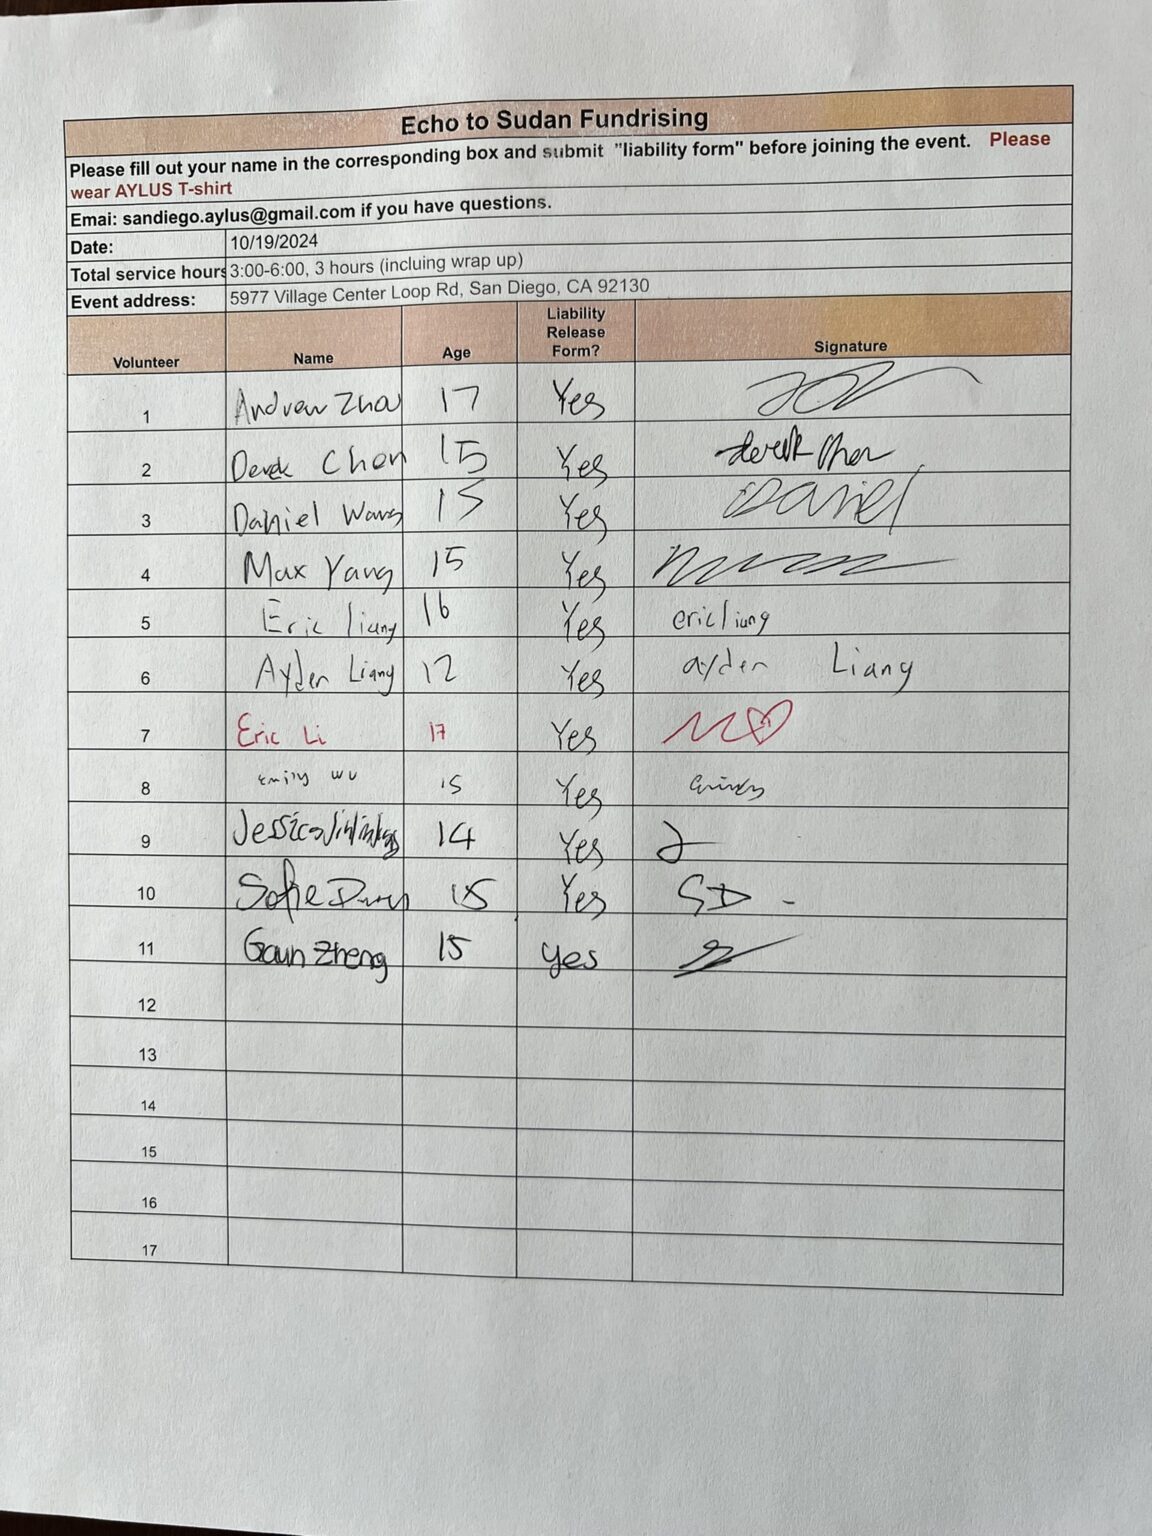 Echo to Sudan Fundrising
Please fill out your name in the corresponding box and submit "liability form" before joining the event. Please
wear AYLUS T-shirt
Emai: sandiego.aylus@gmail.com if you have questions.
Date: 10/19/2024
Total service hours 3:00-6:00, 3 hours (incluing wrap up)
Event address: 5977 Village Center Loop Rd, San Diego, CA 92130
Volunteer Name Age Liability Release Form? Signature
1 Andrew Zhao 17 Yes
2 Derek Chen 15 Yes derek Chen
3 Daniel Wang 15 Yes Daniel
4 Max Yang 15 Yes
5 Eric liang 16 Yes eric liang
6 Ayden Liang 12 Yes ayden Liang
7 Eric Li 17 Yes
8 Emily wu 15 Yes
9 Jessica 14 Yes
10 Sofie 15 Yes SD
11 Zheng 15 yes
12
13
14
15
16
17